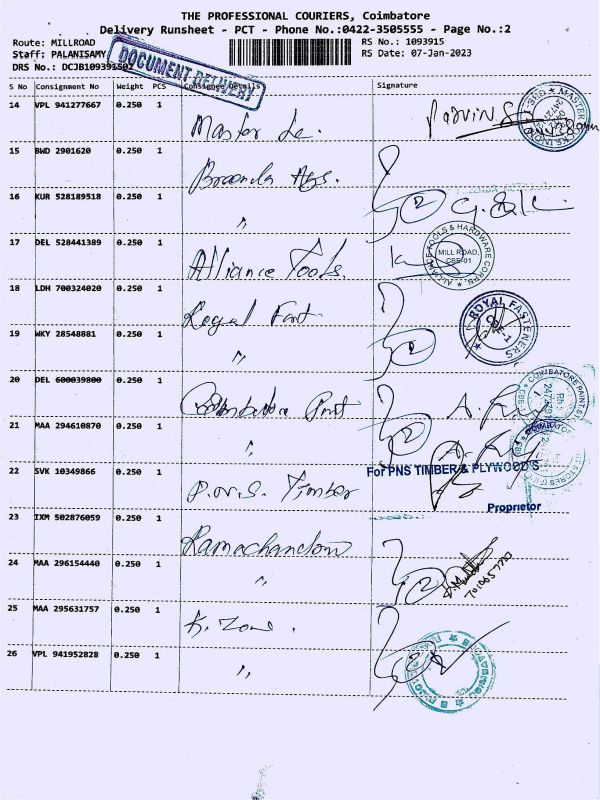 THE PROFESSIONAL COURIERS, Coimbatore
Delivery Runsheet - PCT - Phone No.:0422-3505555 - Page No.:2
Route: MILLROAD RS No.: 1093915
Staff: PALANISAMY RS Date: 07-Jan-2023
DRS No.: DCJB109391502
DOCUMENT DELIVERY
S No Consignment No Weight PCS Consignee Details Signature
14 VPL 941277667 0.250 1 Master
15 BWD 2901620 0.250 1
16 KUR 528189518 0.250 1 " 2
17 DEL 528441389 0.250 1 Alliance Tools.
ALLIANCE TOOLS & HARDWARE CORPN. MILL ROAD, CBE-01
18 LDH 700324020 0.250 1 Royal Fast
ROYAL FASTENERS
19 WKY 28548881 0.250 1 " 2
20 DEL 600039800 0.250 1 Coimbatore Paint
21 MAA 294610870 0.250 1 " 2
22 SVK 10349866 0.250 1 P.N.S. Timber
For PNS TIMBER & PLYWOOD'S
Proprietor
23 IXM 502876059 0.250 1
24 MAA 296154440 0.250 1 " 2
25 MAA 295631757 0.250 1 K. Zone.
26 VPL 941952828 0.250 1 " 2